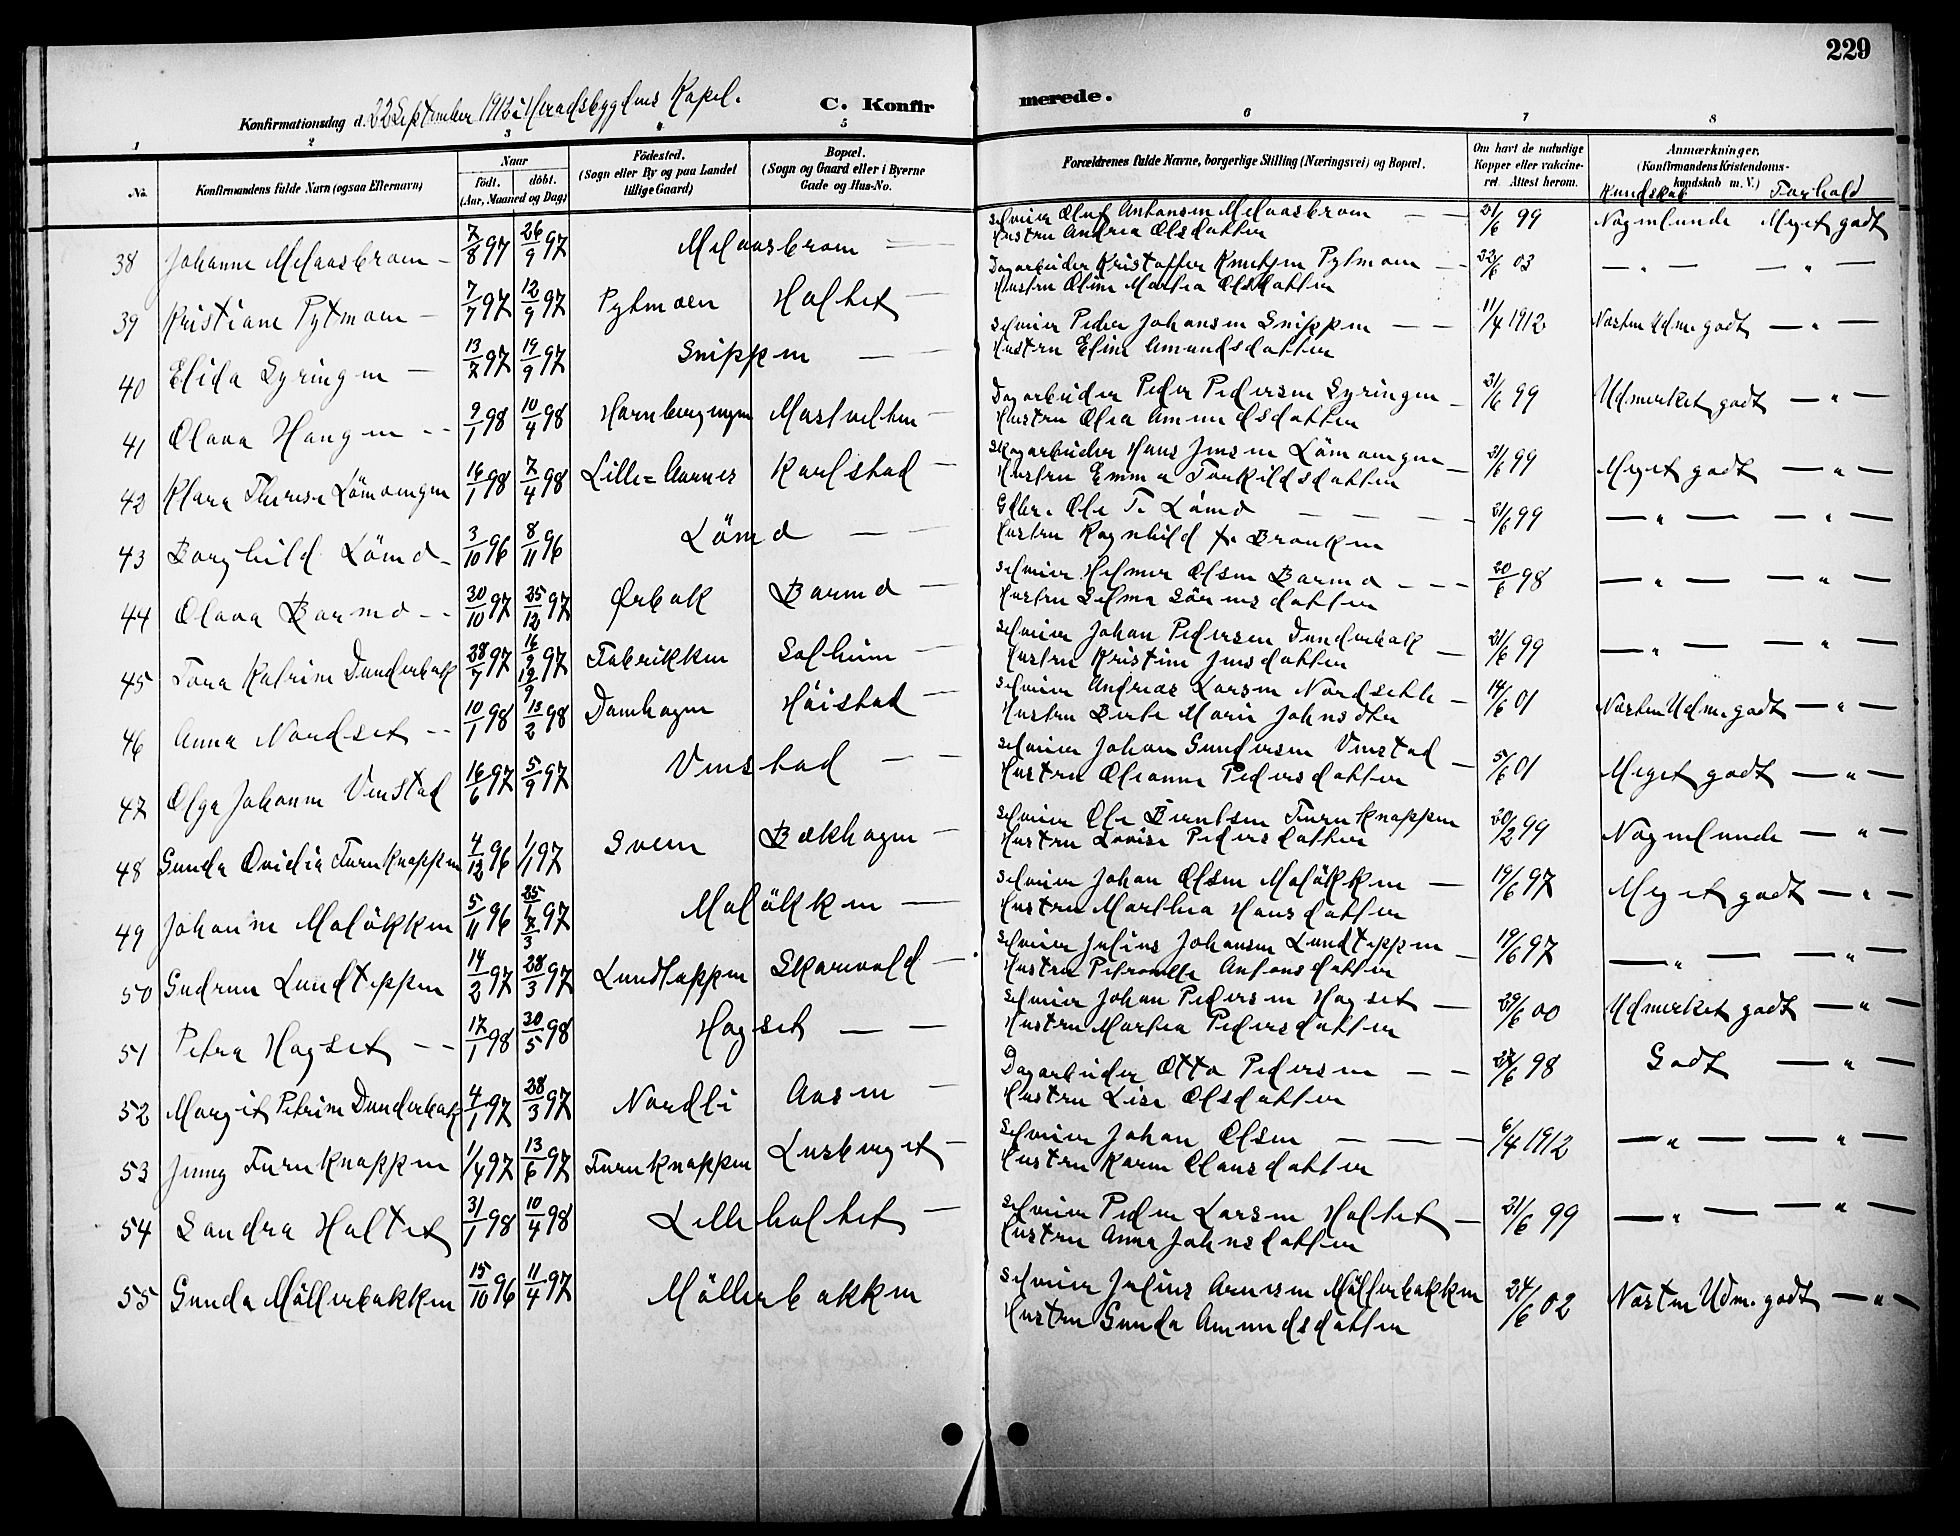 229
Konfirmationsdag d. 22 September 1912 i Heradsbygdens Kapel.
C. Konfirmerede.
1 2 3 4 5 6 7 8
No. Konfirmandens fulde Navn (ogsaa Efternavn) Naar født. døbt. (Aar, Maaned og Dag) Födested. (Sogn eller By og paa Landet tillige Gaard) Bopæl. (Sogn og Gaard eller i Byerne Gade og Hus-No. Forældrenes fulde Navne, borgerlige Stilling (Næringsvei) og Bopæl. Om havt de naturlige Kopper eller vakcineret. Attest herom. Anmærkninger, (Konfirmandens Kristendomskundskab m. V.) Kundskab Forhold
38 Johanne Melaasbraen 7/8 97 26/9 97 Melaasbraen Selveier Oluf Antonsen Melaasbraen 21/6 99 Nogenlunde Meget godt
Hustru Andrea Olsdatter
39 Kristiane Pytmoen 7/7 97 12/9 97 Pytmoen Holtet Dagarbeider Kristoffer Knutsen Pytmoen 22/6 03 " "
Hustru Oline Marthea Olsdatter
40 Elida Syringen 13/7 97 19/9 97 Snippen Selveier Peder Johansen Snippen 11/4 1912 Næsten Udm. godt "
Hustru Eline Amundsdatter
41 Olava Haugen 9/1 98 10/4 98 Hornbergengen Mostveten Dagarbeider Peder Pedersen Syringen 21/6 99 Udmerket godt "
Hustru Olea Amundsdatter
42 Klara Therese Lömoengen 16/1 98 7/4 98 Lille=Aarnes Karlstad Skogarbeider Hans Jensen Lömoengen 21/6 99 Meget godt "
Hustru Emma Torkildsdatter
43 Borghild Lömo 3/10 96 8/11 96 Lömo Gbr. Ole T. Lömo 21/6 99 " "
Hustru Ragnhild f. Brauken
44 Olava Barmo 30/10 97 25/12 97 Ørbak Barmo Selveier Helmer Olsen Barmo 20/6 98 " "
Hustru Selma Sörensdatter
45 Tora Katrine Dunderbak 28/7 97 16/9 12/9 97 Fabrikken Solheim Selveier Johan Pedersen Dunderbak 21/6 99 " "
Hustru Kristine Jensdatter
46 Anna Nordset 10/1 98 13/2 98 Damhagen Höistad Selveier Andreas Larsen Nordsetli 14/6 01 Næsten Udm. godt "
Hustru Berte Marie Johnsdtr
47 Olga Johanne Venstad 16/6 97 5/9 97 Venstad Selveier Johan Gundersen Venstad 5/6 01 Meget godt "
Hustru Oleanne Pedersdatter
48 Gunda Ovidia Furuknappen 4/12 96 1/1 97 Sveen Bækhagen Selveier Ole Berntsen Furuknappen 20/2 99 Nogenlunde "
Hustru Lovise Pedersdatter
49 Johanne Malökken 5/11 96 25/1 7/3 97 Malökken Selveier Johan Olsen Malökken 19/6 97 Meget godt "
Hustru Marthea Hansdatter
50 Gudrun Lundteppen 14/2 97 28/3 97 Lundteppen Skarvold Selveier Julius Johansen Lundteppen 19/6 97 " "
Hustru Petronelle Antonsdatter
51 Petra Hagset 17/1 98 30/5 98 Hagset Selveier Johan Pedersen Hagset 29/6 00 Udmerket godt "
Hustru Marthea Pedersdatter
52 Margit Petrine Dunderbak 4/1 97 28/3 97 Nordli Aasen Dagarbeider Otto Pedersen 27/6 98 Godt "
Hustru Lise Olsdatter
53 Jenny Furuknappen 1/4 97 13/6 97 Furuknappen Lusberget Selveier Johan Olsen 6/4 1912 " "
Hustru Karen Olausdatter
54 Sandra Holtet 31/1 98 10/4 98 Lilleholtet Selveier Peder Larsen Holtet 21/6 99 " "
Hustru Anne Johnsdatter
55 Gunda Möllerbakken 15/10 96 11/4 97 Möllerbakken Selveier Julius Arnesen Möllerbakken 24/6 02 Næsten Udm. godt "
Hustru Gunda Amundsdatter